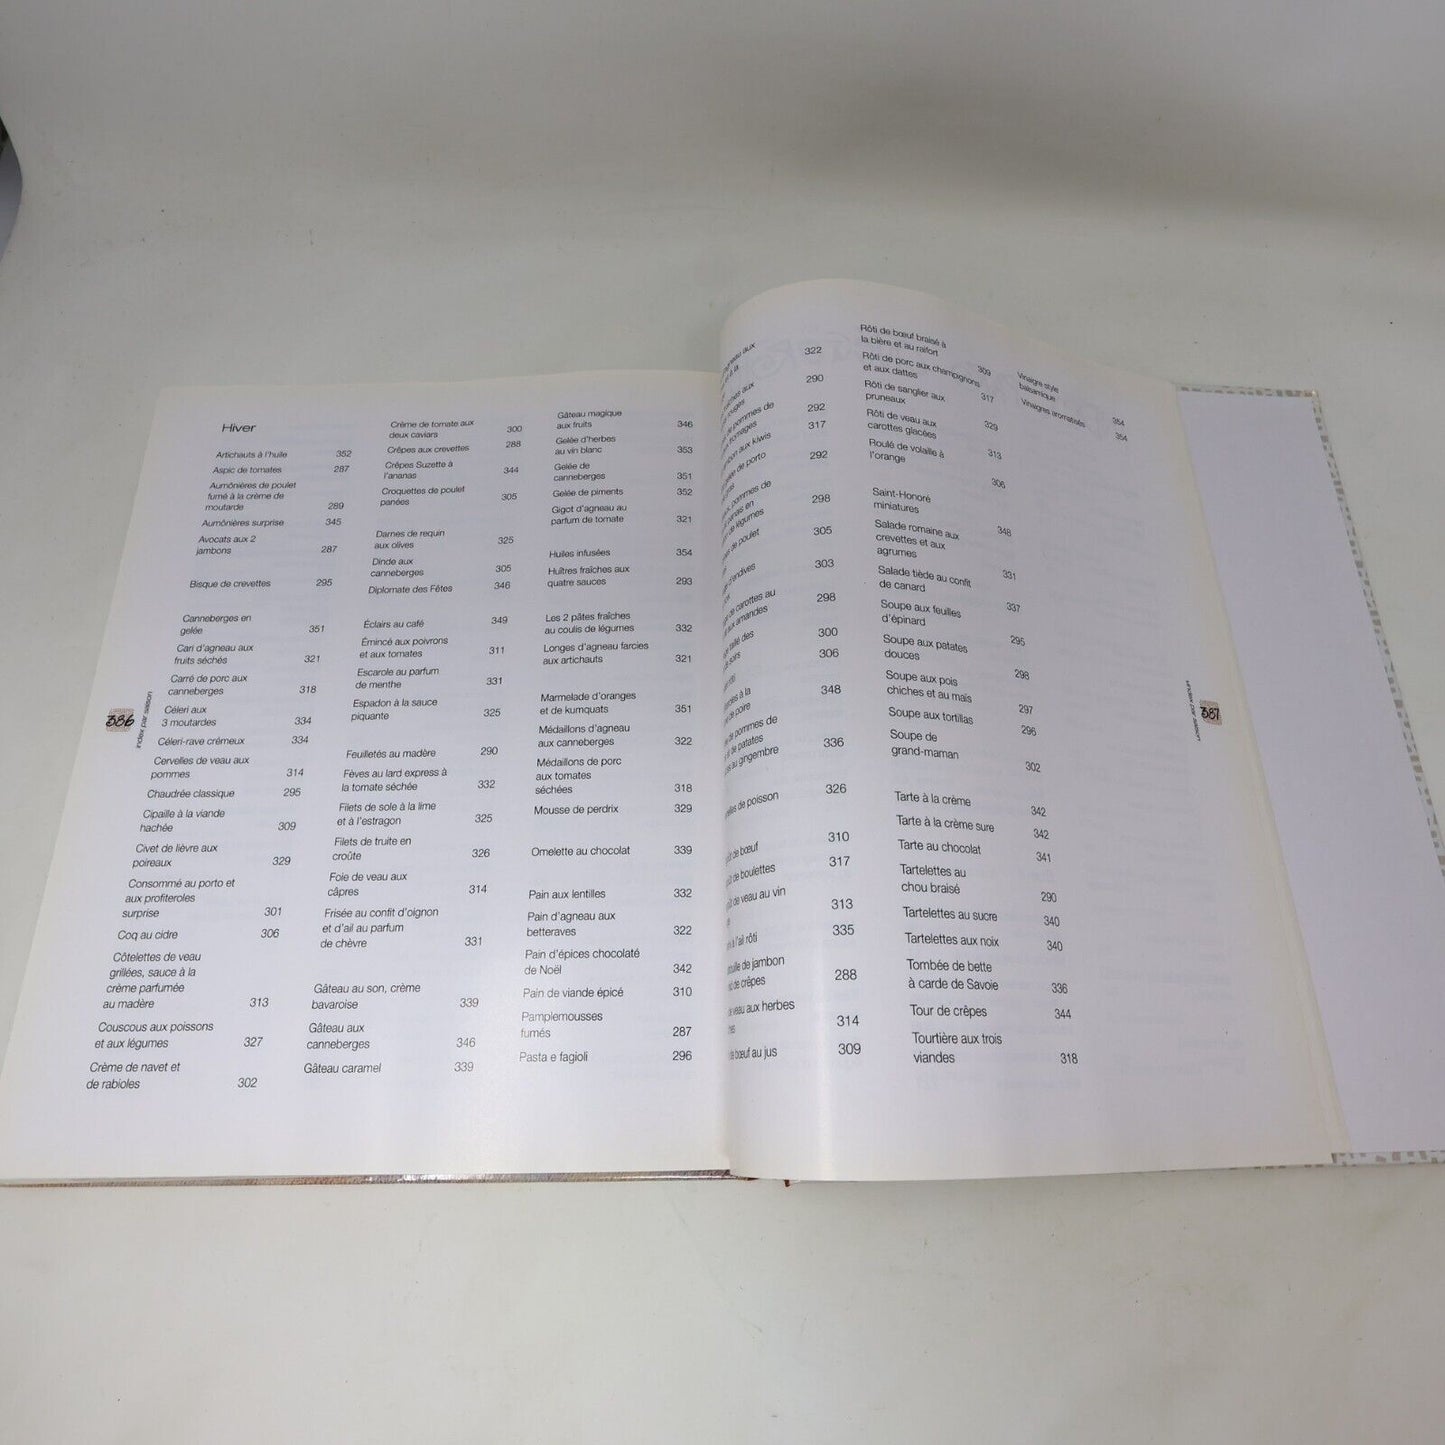 Hiver
Artichauts à l'huile 352
Aspic de tomates 287
Aumônières de poulet
fumé à la crème de
moutarde 289
Aumônières surprise 345
Avocats aux 2
jambons 287
Bisque de crevettes 295
Canneberges en
gelée 351
Cari d'agneau aux
fruits séchés 321
Carré de porc aux
canneberges 318
Céleri aux
3 moutardes 334
Céleri-rave crémeux 334
Cervelles de veau aux
pommes 314
Chaudrée classique 295
Cipaille à la viande
hachée 309
Civet de lièvre aux
poireaux 329
Consommé au porto et
aux profiteroles
surprise 301
Coq au cidre 306
Côtelettes de veau
grillées, sauce à la
crème parfumée
au madère 313
Couscous aux poissons
et aux légumes 327
Crème de navet et
de rabioles 302
Crème de tomate aux
deux caviars 300
Crêpes aux crevettes 288
Crêpes Suzette à
l'ananas 344
Croquettes de poulet
panées 305
Darnes de requin
aux olives 325
Dinde aux
canneberges 305
Diplomate des Fêtes 346
Éclairs au café 349
Émincé aux poivrons
et aux tomates 311
Escarole au parfum
de menthe 331
Espadon à la sauce
piquante 325
Feuilletés au madère 290
Fèves au lard express à
la tomate séchée 332
Filets de sole à la lime
et à l'estragon 325
Filets de truite en
croûte 326
Foie de veau aux
câpres 314
Frisée au confit d'oignon
et d'ail au parfum
de chèvre 331
Gâteau au son, crème
bavaroise 339
Gâteau aux
canneberges 346
Gâteau caramel 339
Gâteau magique
aux fruits 346
Gelée d'herbes
au vin blanc 353
Gelée de
canneberges 351
Gelée de piments 352
Gigot d'agneau au
parfum de tomate 321
Huiles infusées 354
Huîtres fraîches aux
quatre sauces 293
Les 2 pâtes fraîches
au coulis de légumes 332
Longes d'agneau farcies
aux artichauts 321
Marmelade d'oranges
et de kumquats 351
Médaillons d'agneau
aux canneberges 322
Médaillons de porc
aux tomates
séchées 318
Mousse de perdrix 329
Omelette au chocolat 339
Pain aux lentilles 332
Pain d'agneau aux
betteraves 322
Pain d'épices chocolaté
de Noël 342
Pain de viande épicé 310
Pamplemousses
fumés 287
Pasta e fagioli 296
386
index par saison
aux
à la 322
aux
rouges 290
de pommes de
fromages 292
aux kiwis 317
de porto
292
pommes de
panais en
de légumes 298
de poulet 305
d'endives 303
de carottes au
aux amandes 298
taillé des
de soirs 300
306
à la
de poire 348
de pommes de
de patates
au gingembre 336
de poisson 326
de bœuf 310
de boulettes 317
de veau au vin
313
à l'ail rôti 335
de jambon
de crêpes 288
de veau aux herbes
314
de bœuf au jus 309
Rôti de bœuf braisé à
la bière et au raifort 309
Rôti de porc aux champignons
et aux dattes 317
Rôti de sanglier aux
pruneaux 329
Rôti de veau aux
carottes glacées 313
Roulé de volaille à
l'orange 306
Saint-Honoré
miniatures 348
Salade romaine aux
crevettes et aux
agrumes 331
Salade tiède au confit
de canard 337
Soupe aux feuilles
d'épinard 295
Soupe aux patates
douces 298
Soupe aux pois
chiches et au maïs 297
Soupe aux tortillas 296
Soupe de
grand-maman 302
Tarte à la crème 342
Tarte à la crème sure 342
Tarte au chocolat 341
Tartelettes au
chou braisé 290
Tartelettes au sucre 340
Tartelettes aux noix 340
Tombée de bette
à carde de Savoie 336
Tour de crêpes 344
Tourtière aux trois
viandes 318
Vinaigre style
balsamique 354
Vinaigres aromatisés 354
387
index par saison